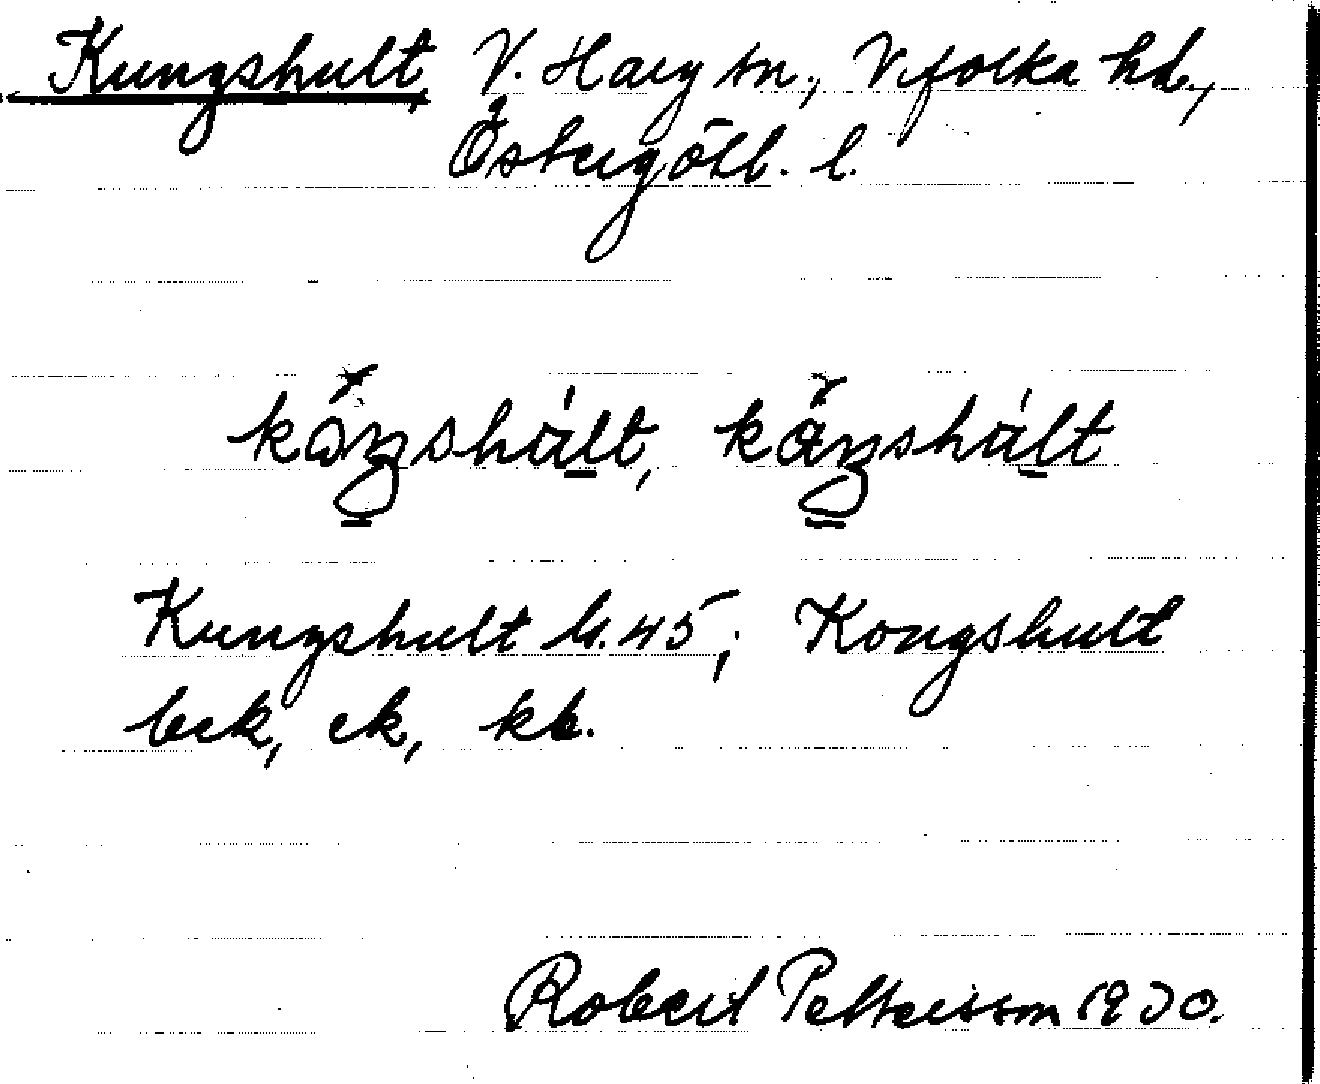 Kungshult, V. Harg sn., Vifolka hd.,
Östergötl. l.
kåŋshult, kåŋshult
Kungshult M.45; Kongshult
beck, ek, kb.
Robert Pettersson 1930.